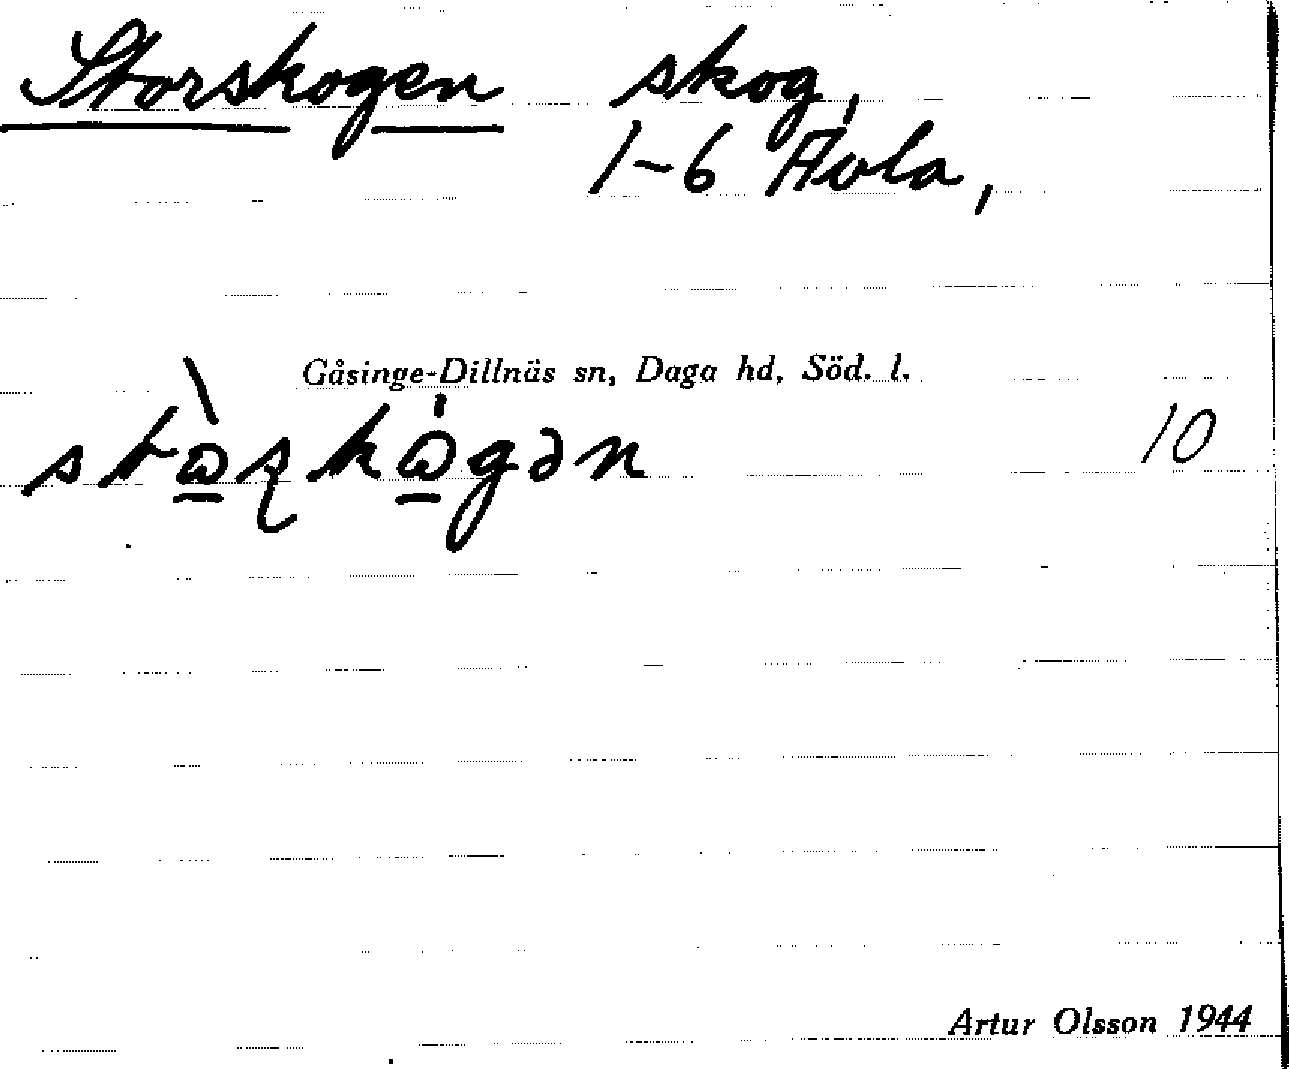 Storskogen skog,
1-6 Åvla,
Gåsinge-Dillnäs sn, Daga hd, Söd. l.
10
Artur Olsson 1944